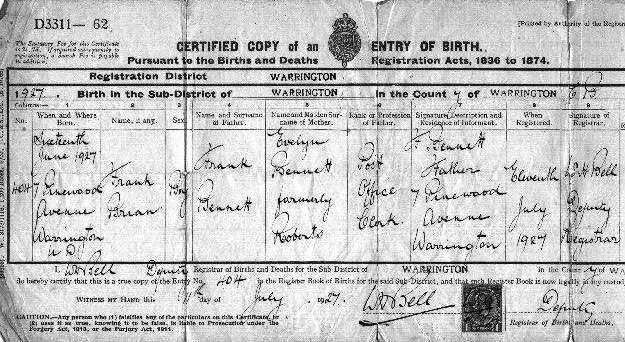 D3311— 62
[Printed by Authority of the Registrar
The Statutory Fee for this Certificate
is 2s. 7d. If required subsequently to
registration, a Search Fee is payable
in addition.
CERTIFIED COPY of an ENTRY OF BIRTH.
Pursuant to the Births and Deaths Registration Acts, 1836 to 1874.
Registration District WARRINGTON
1927. Birth in the Sub-District of WARRINGTON in the County of WARRINGTON C.B.
Columns:— 1 2 3 4 5 6 7 8 9
No. When and Where Born. Name, if any. Sex. Name and Surname of Father. Name and Maiden Surname of Mother. Rank or Profession of Father. Signature, Description and Residence of Informant. When Registered. Signature of Registrar.
404 Sixteenth June 1927 7 Pinewood Avenue Warrington U.D. Frank Brian Boy Frank Bennett Evelyn Bennett formerly Roberts Post Office Clerk F Bennett Father 7 Pinewood Avenue Warrington Eleventh July 1927 W H Bell Deputy Registrar
I, W H Bell Deputy Registrar of Births and Deaths for the Sub-District of WARRINGTON in the County of WAR
do hereby certify that this is a true copy of the Entry No. 404 in the Register Book of Births for the said Sub-District, and that such Register Book is now legally in my custody.
WITNESS MY HAND this 11th day of July, 1927. W H Bell Deputy
CAUTION.—Any person who (1) falsifies any of the particulars on this Certificate, or
(2) uses it as true, knowing it to be false, is liable to Prosecution under the
Forgery Act, 1913, or the Perjury Act, 1911.
Registrar of Births and Deaths